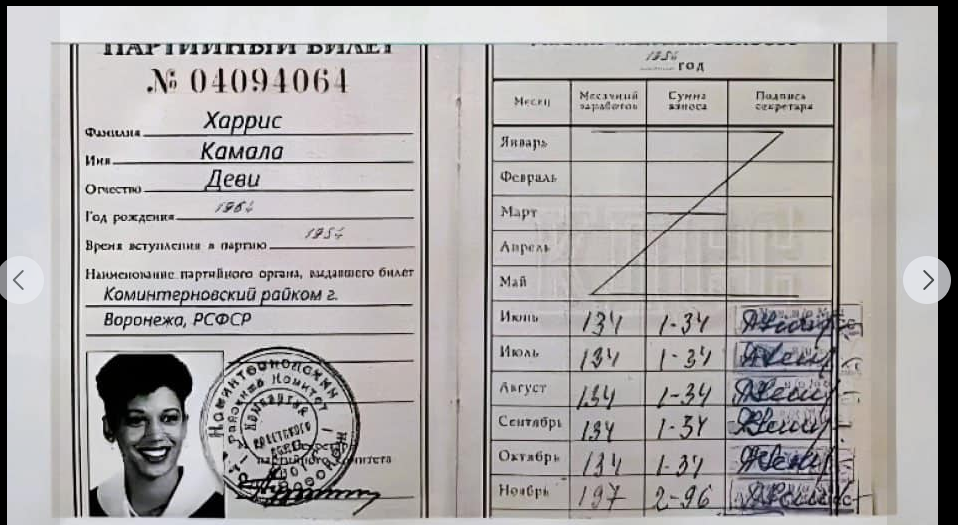 ПАРТИЙНЫЙ БИЛЕТ
№ 04094064
Фамилия Харрис
Имя Камала
Отчество Деви
Год рождения 1964
Время вступления в партию 1984
Наименование партийного органа, выдавшего билет
Коминтерновский райком г.
Воронежа, РСФСР
партийного комитета
год
Месяц Месячный заработок Сумма взноса Подпись секретаря
Январь
Февраль
Март
Апрель
Май
Июнь 134 1-34
Июль 134 1-34
Август 134 1-34
Сентябрь 134 1-34
Октябрь 134 1-34
Ноябрь 197 2-96